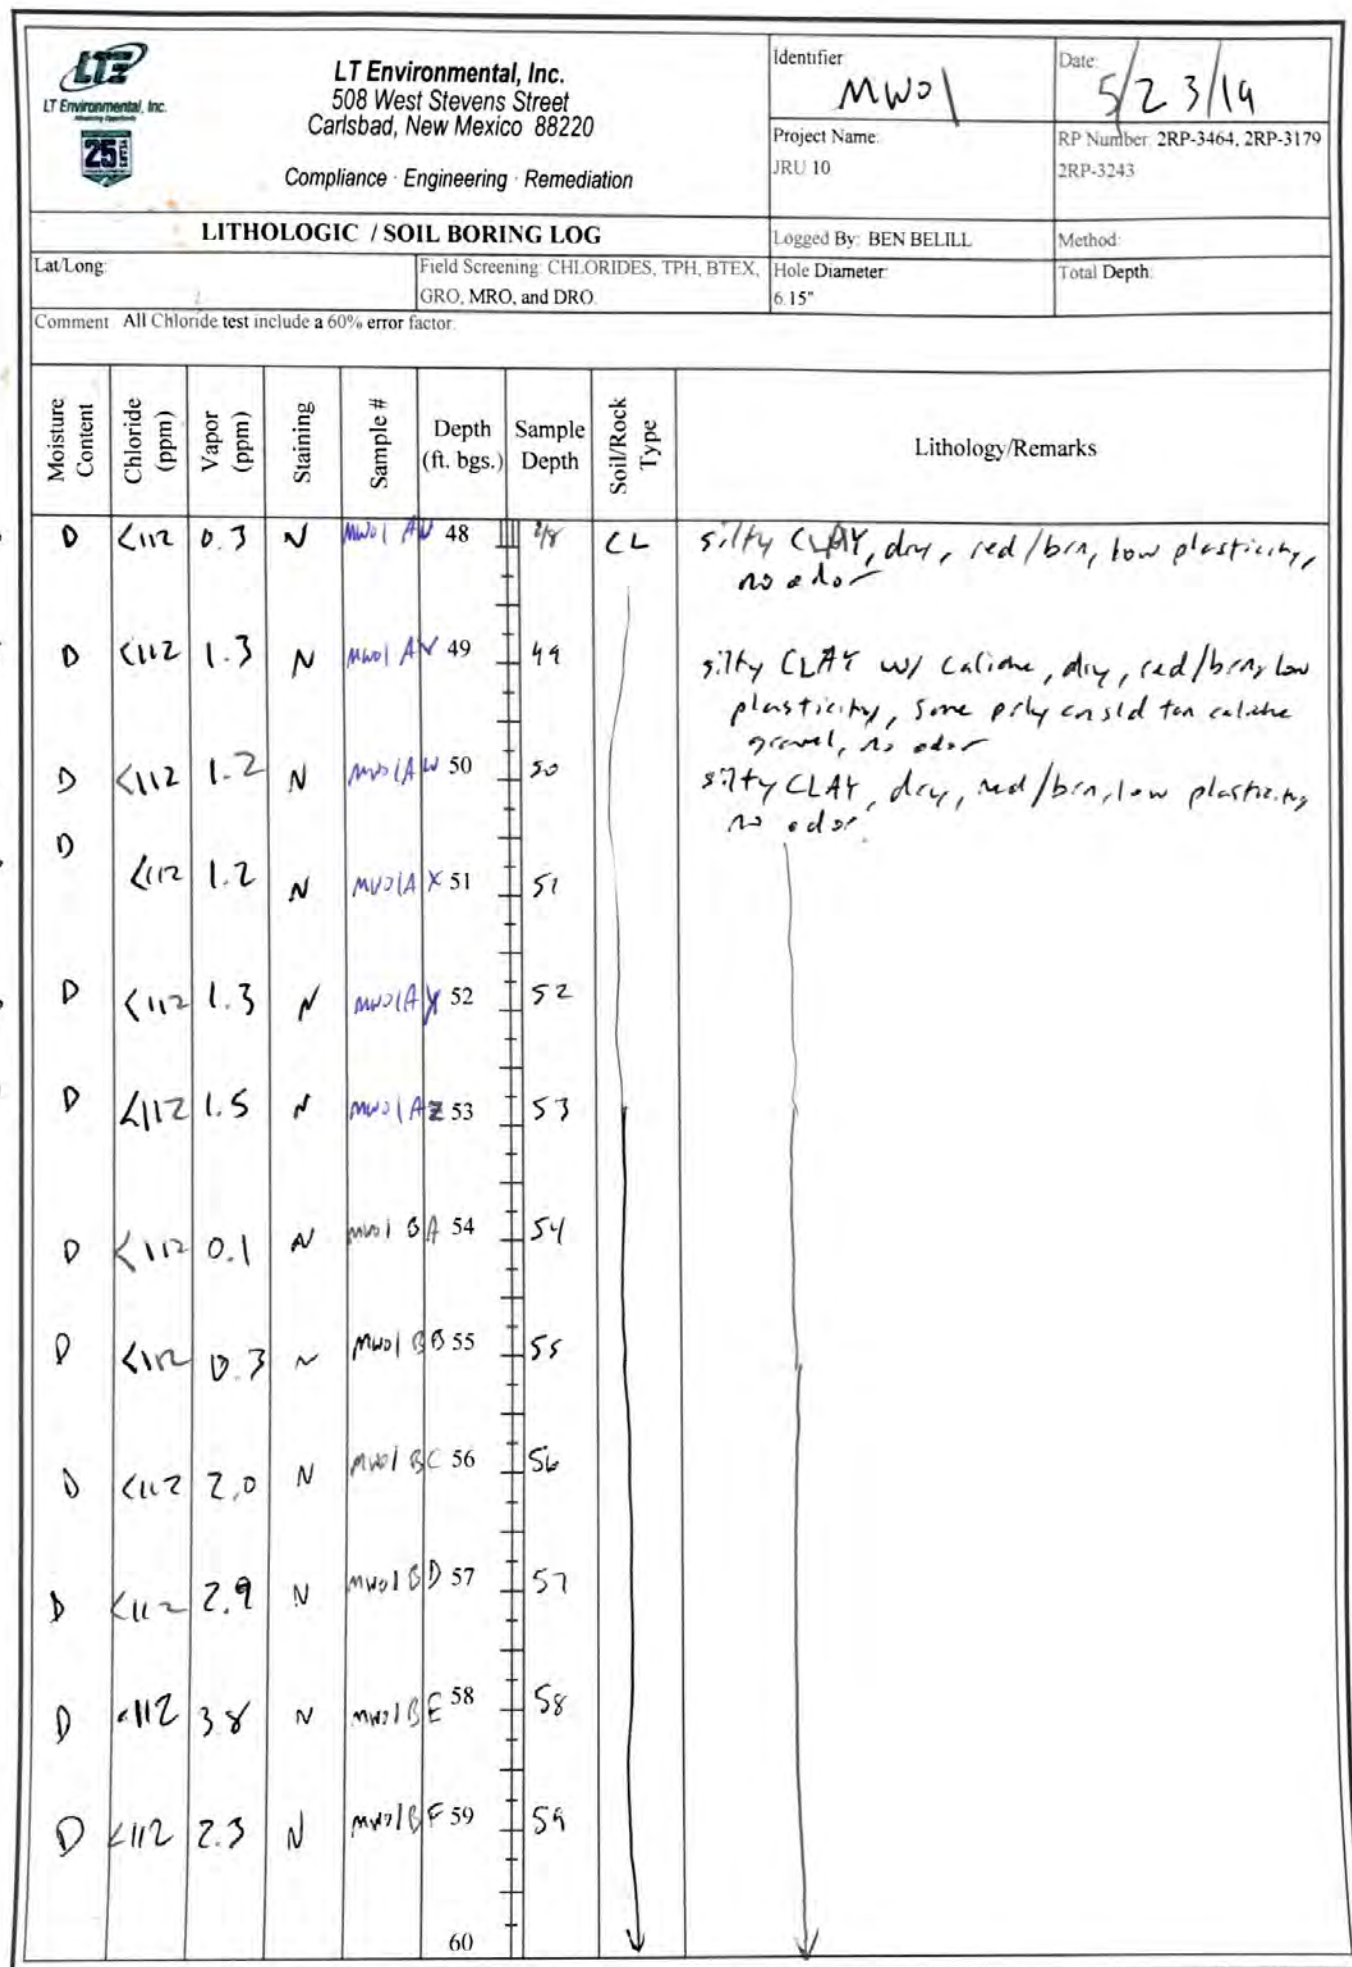 LTE
LT Environmental, Inc.
Advancing Opportunity
25 YEARS
LT Environmental, Inc.
508 West Stevens Street
Carlsbad, New Mexico 88220
Compliance · Engineering · Remediation
Identifier:
MW01
Date:
5/23/19
Project Name:
JRU 10
RP Number: 2RP-3464, 2RP-3179
2RP-3243
LITHOLOGIC / SOIL BORING LOG
Logged By: BEN BELILL
Method:
Lat/Long:
Field Screening: CHLORIDES, TPH, BTEX,
GRO, MRO, and DRO.
Hole Diameter:
6.15"
Total Depth:
Comment: All Chloride test include a 60% error factor.
Moisture Content
Chloride (ppm)
Vapor (ppm)
Staining
Sample #
Depth (ft. bgs.)
Sample Depth
Soil/Rock Type
Lithology/Remarks
D <112 0.3 N MW01 AU 48 48 CL silty CLAY, dry, red/brn, low plasticity,
no odor
D <112 1.3 N MW01 AV 49 49 silty CLAY w/ caliche, dry, red/brn, low
plasticity, some prly cnsld tan caliche
gravel, no odor
D <112 1.2 N MW01AW 50 50 silty CLAY, dry, red/brn, low plasticity
no odor
D <112 1.2 N MW01A X 51 51
D <112 1.3 N MW01A Y 52 52
D <112 1.5 N MW01A Z 53 53
D <112 0.1 N MW01 BA 54 54
D <112 0.3 N MW01 BB 55 55
D <112 2.0 N MW01 BC 56 56
D <112 2.9 N MW01 BD 57 57
D <112 3.8 N MW01BE 58 58
D <112 2.3 N MW01BF 59 59
60